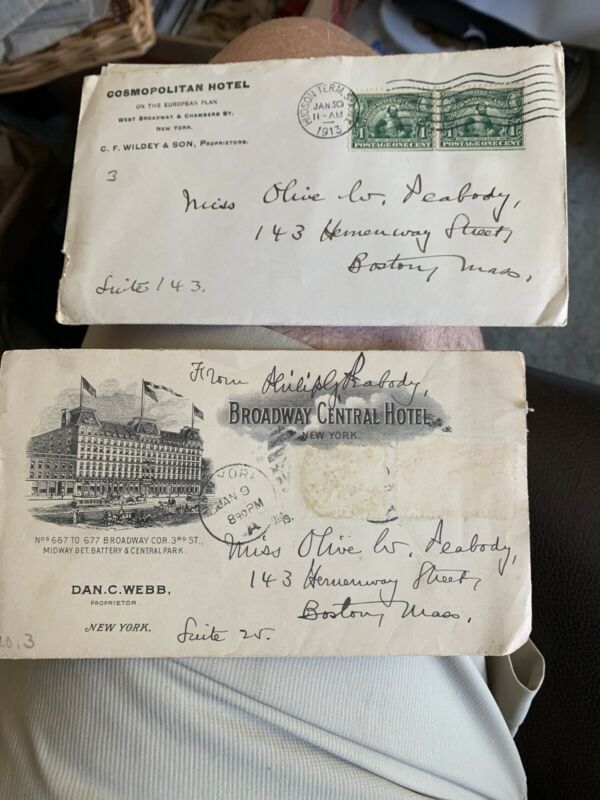 COSMOPOLITAN HOTEL
ON THE EUROPEAN PLAN
WEST BROADWAY & CHAMBERS ST.
NEW YORK.
C. F. WILDEY & SON, PROPRIETORS.
3
HUDSON TERM. STA.
JAN 30
11-AM
1913
1 1
POSTAGE ONE CENT
1 1
POSTAGE ONE CENT
Miss Olive W. Peabody,
143 Hemenway Street,
Boston, Mass.
Suite 143.
From Philip G. Peabody,
BROADWAY CENTRAL HOTEL
NEW YORK.
YORK
JAN 9
8 30 PM
A
NOS 667 TO 677 BROADWAY COR. 3RD ST.,
MIDWAY BET. BATTERY & CENTRAL PARK.
DAN. C. WEBB,
PROPRIETOR.
NEW YORK.
Miss Olive W. Peabody,
143 Hemenway Street,
Boston, Mass.
Suite 25.
3